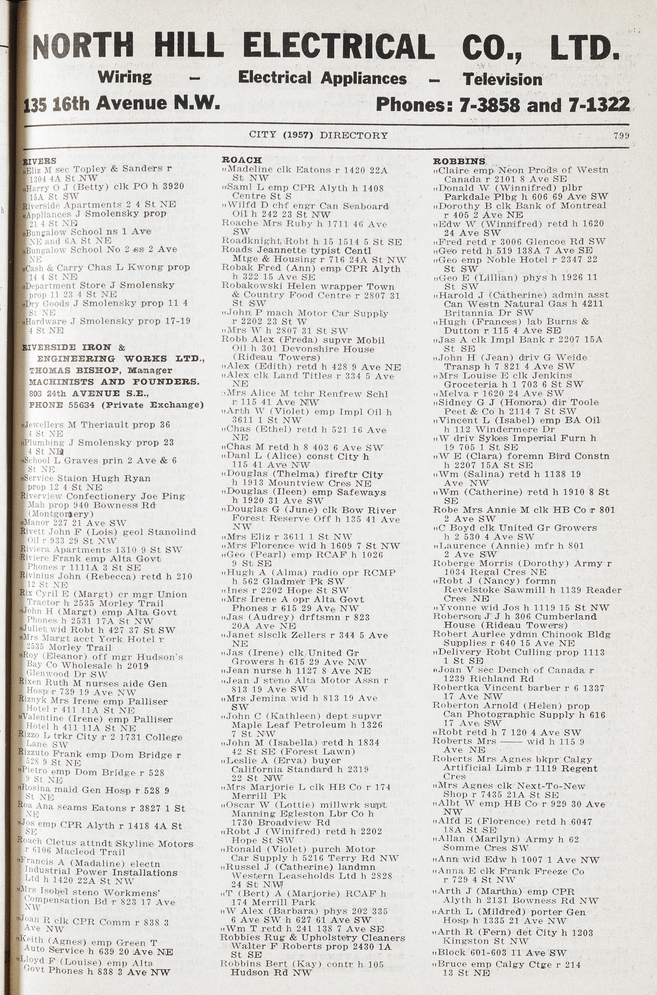 NORTH HILL ELECTRICAL CO., LTD.
Wiring — Electrical Appliances — Television
135 16th Avenue N.W. Phones: 7-3858 and 7-1322
CITY (1957) DIRECTORY 799
RIVERS
„Eliz M sec Topley & Sanders r
1304 4A St NW
„Harry O J (Betty) clk PO h 3920
15A St SW
Riverside Apartments 2 4 St NE
„Appliances J Smolensky prop
21 4 St NE
„Bungalow School ns 1 Ave
NE and 6A St NE
„Bungalow School No 2 es 2 Ave
NE
„Cash & Carry Chas L Kwong prop
14 4 St NE
„Department Store J Smolensky
prop 11 23 4 St NE
„Dry Goods J Smolensky prop 11 4
St NE
„Hardware J Smolensky prop 17-19
4 St NE
RIVERSIDE IRON &
ENGINEERING WORKS LTD.,
THOMAS BISHOP, Manager
MACHINISTS AND FOUNDERS.
803 24th AVENUE S.E.,
PHONE 55634 (Private Exchange)
„Jewellers M Theriault prop 36
4 St NE
„Plumbing J Smolensky prop 23
4 St NE
„School L Graves prin 2 Ave & 6
St NE
„Service Staion Hugh Ryan
prop 12 4 St NE
Riverview Confectionery Joe Ping
Mah prop 940 Bowness Rd
(Montgomery)
„Manor 227 21 Ave SW
Rivett John F (Lois) geol Stanolind
Oil r 933 29 St NW
Riviera Apartments 1310 9 St SW
Riviere Frank emp Alta Govt
Phones r 1111A 3 St SE
Rivinius John (Rebecca) retd h 210
12 St NE
Rix Cyril E (Margt) cr mgr Union
Tractor h 2535 Morley Trail
„John H (Margt) emp Alta Govt
Phones h 2531 17A St NW
„Juliet wid Robt h 427 37 St SW
„Mrs Margt acct York Hotel r
2535 Morley Trail
„Roy (Eleanor) off mgr Hudson's
Bay Co Wholesale h 2019
Glenwood Dr SW
Rixen Ruth M nurses aide Gen
Hosp r 739 19 Ave NW
Riznyk Mrs Irene emp Palliser
Hotel r 411 11A St NE
„Valentine (Irene) emp Palliser
Hotel h 411 11A St NE
Rizzo L trkr City r 2 1731 College
Lane SW
Rizzuto Frank emp Dom Bridge r
528 9 St NE
„Pietro emp Dom Bridge r 528
9 St NE
„Rosina maid Gen Hosp r 528 9
St NE
Roa Ana seams Eatons r 3827 1 St
NE
„Jos emp CPR Alyth r 1418 4A St
SE
Roach Cletus attndt Skyline Motors
r 6106 Macleod Trail
„Francis A (Madaline) electn
Industrial Power Installations
Ltd h 1420 22A St NW
„Mrs Isobel steno Workmens'
Compensation Bd r 823 17 Ave
NW
„Joan R clk CPR Comm r 838 3
Ave NW
„Keith (Agnes) emp Green T
Auto Service h 639 20 Ave NE
„Lloyd F (Louise) emp Alta
Govt Phones h 838 3 Ave NW
ROACH
„Madeline clk Eatons r 1420 22A
St NW
„Saml L emp CPR Alyth h 1408
Centre St S
„Wilfd D chf engr Can Seaboard
Oil h 242 23 St NW
Roache Mrs Ruby h 1711 46 Ave
SW
Roadknight Robt h 15 1514 5 St SE
Roads Jeannette typist Centl
Mtge & Housing r 716 24A St NW
Robak Fred (Ann) emp CPR Alyth
h 322 15 Ave SE
Robakowski Helen wrapper Town
& Country Food Centre r 2807 31
St SW
„John P mach Motor Car Supply
r 2202 23 St W
„Mrs W h 2807 31 St SW
Robb Alex (Freda) supvr Mobil
Oil h 301 Devonshire House
(Rideau Towers)
„Alex (Edith) retd h 428 9 Ave NE
„Alex clk Land Titles r 334 5 Ave
NE
„Mrs Alice M tchr Renfrew Schl
r 115 41 Ave NW
„Arth W (Violet) emp Impl Oil h
3611 1 St NW
„Chas (Ethel) retd h 521 16 Ave
NE
„Chas M retd h 8 403 6 Ave SW
„Danl L (Alice) const City h
115 41 Ave NW
„Douglas (Thelma) fireftr City
h 1913 Mountview Cres NE
„Douglas (Ileen) emp Safeways
h 1920 31 Ave SW
„Douglas G (June) clk Bow River
Forest Reserve Off h 135 41 Ave
NW
„Mrs Eliz r 3611 1 St NW
„Mrs Florence wid h 1609 7 St NW
„Geo (Pearl) emp RCAF h 1026
9 St SE
„Hugh A (Alma) radio opr RCMP
h 562 Gladmer Pk SW
„Ines r 2202 Hope St SW
„Mrs Irene A opr Alta Govt
Phones r 615 29 Ave NW
„Jas (Audrey) drftsmn r 823
20A Ave NE
„Janet slsclk Zellers r 344 5 Ave
NE
„Jas (Irene) clk United Gr
Growers h 615 29 Ave N.W
„Jean nurse h 1127 8 Ave NE
„Jean J steno Alta Motor Assn r
813 19 Ave SW
„Mrs Jemina wid h 813 19 Ave
SW
„John C (Kathleen) dept supvr
Maple Leaf Petroleum h 1326
7 St NW
„John M (Isabella) retd h 1834
42 St SE (Forest Lawn)
„Leslie A (Erva) buyer
California Standard h 2319
22 St NW
„Mrs Marjorie L clk HB Co r 174
Merrill Pk
„Oscar W (Lottie) millwrk supt
Manning Egleston Lbr Co h
1730 Broadview Rd
„Robt J (Winifred) retd h 2202
Hope St SW
„Ronald (Violet) purch Motor
Car Supply h 5216 Terry Rd NW
„Russel J (Catherine) landmn
Western Leaseholds Ltd h 2828
24 St NW
„T (Bert) A (Marjorie) RCAF h
174 Merrill Park
„W Alex (Barbara) phys 202 335
6 Ave SW h 627 61 Ave SW
„Wm T retd h 241 138 7 Ave SE
Robbies Rug & Upholstery Cleaners
Walter F Roberts prop 2430 1A
St SE
Robbins Bert (Kay) contr h 105
Hudson Rd NW
ROBBINS
„Claire emp Neon Prods of Westn
Canada r 2101 8 Ave SE
„Donald W (Winnifred) plbr
Parkdale Plbg h 606 69 Ave SW
„Dorothy B clk Bank of Montreal
r 405 2 Ave NE
„Edw W (Winnifred) retd h 1620
24 Ave SW
„Fred retd r 3006 Glencoe Rd SW
„Geo retd h 519 138A 7 Ave SE
„Geo emp Noble Hotel r 2347 22
St SW
„Geo E (Lillian) phys h 1926 11
St SW
„Harold J (Catherine) admin asst
Can Westn Natural Gas h 4211
Britannia Dr SW
„Hugh (Frances) lab Burns &
Dutton r 115 4 Ave SE
„Jas A clk Impl Bank r 2207 15A
St SE
„John H (Jean) driv G Weide
Transp h 7 821 4 Ave SW
„Mrs Louise E clk Jenkins
Groceteria h 1 703 6 St SW
„Melva r 1620 24 Ave SW
„Sidney G J (Honora) dir Toole
Peet & Co h 2114 7 St SW
„Vincent L (Isabel) emp BA Oil
h 112 Windermere Dr
„W driv Sykes Imperial Furn h
19 705 1 St SE
„W E (Clara) foremn Bird Constn
h 2207 15A St SE
„Wm (Salina) retd h 1138 19
Ave NW
„Wm (Catherine) retd h 1910 8 St
SE
Robe Mrs Annie M clk HB Co r 801
2 Ave SW
„C Boyd clk United Gr Growers
h 2 530 4 Ave SW
„Laurence (Annie) mfr h 801
2 Ave SW
Roberge Morris (Dorothy) Army r
1034 Regal Cres NE
„Robt J (Nancy) formn
Revelstoke Sawmill h 1139 Reader
Cres NE
„Yvonne wid Jos h 1119 15 St NW
Roberson J J h 306 Cumberland
House (Rideau Towers)
Robert Aurlee ydmn Chinook Bldg
Supplies r 640 15 Ave NE
„Delivery Robt Culling prop 1113
1 St SE
„Joan V sec Dench of Canada r
1239 Richland Rd
Robertka Vincent barber r 6 1337
17 Ave NW
Roberton Arnold (Helen) prop
Can Photographic Supply h 616
17 Ave SW
„Robt retd h 7 120 4 Ave SW
Roberts Mrs —— wid h 115 9
Ave NE
Roberts Mrs Agnes bkpr Calgy
Artificial Limb r 1119 Regent
Cres
„Mrs Agnes clk Next-To-New
Shop r 7435 21A St SE
„Albt W emp HB Co r 929 30 Ave
NW
„Alfd E (Florence) retd h 6047
18A St SE
„Allan (Marilyn) Army h 62
Somme Cres SW
„Ann wid Edw h 1007 1 Ave NW
„Anna E clk Frank Freeze Co
r 729 4 St NW
„Arth J (Martha) emp CPR
Alyth h 2131 Bowness Rd NW
„Arth L (Mildred) porter Gen
Hosp h 1335 21 Ave NW
„Arth R (Fern) det City h 1203
Kingston St NW
„Block 601-603 11 Ave SW
„Bruce emp Calgy Ctge r 214
13 St NE